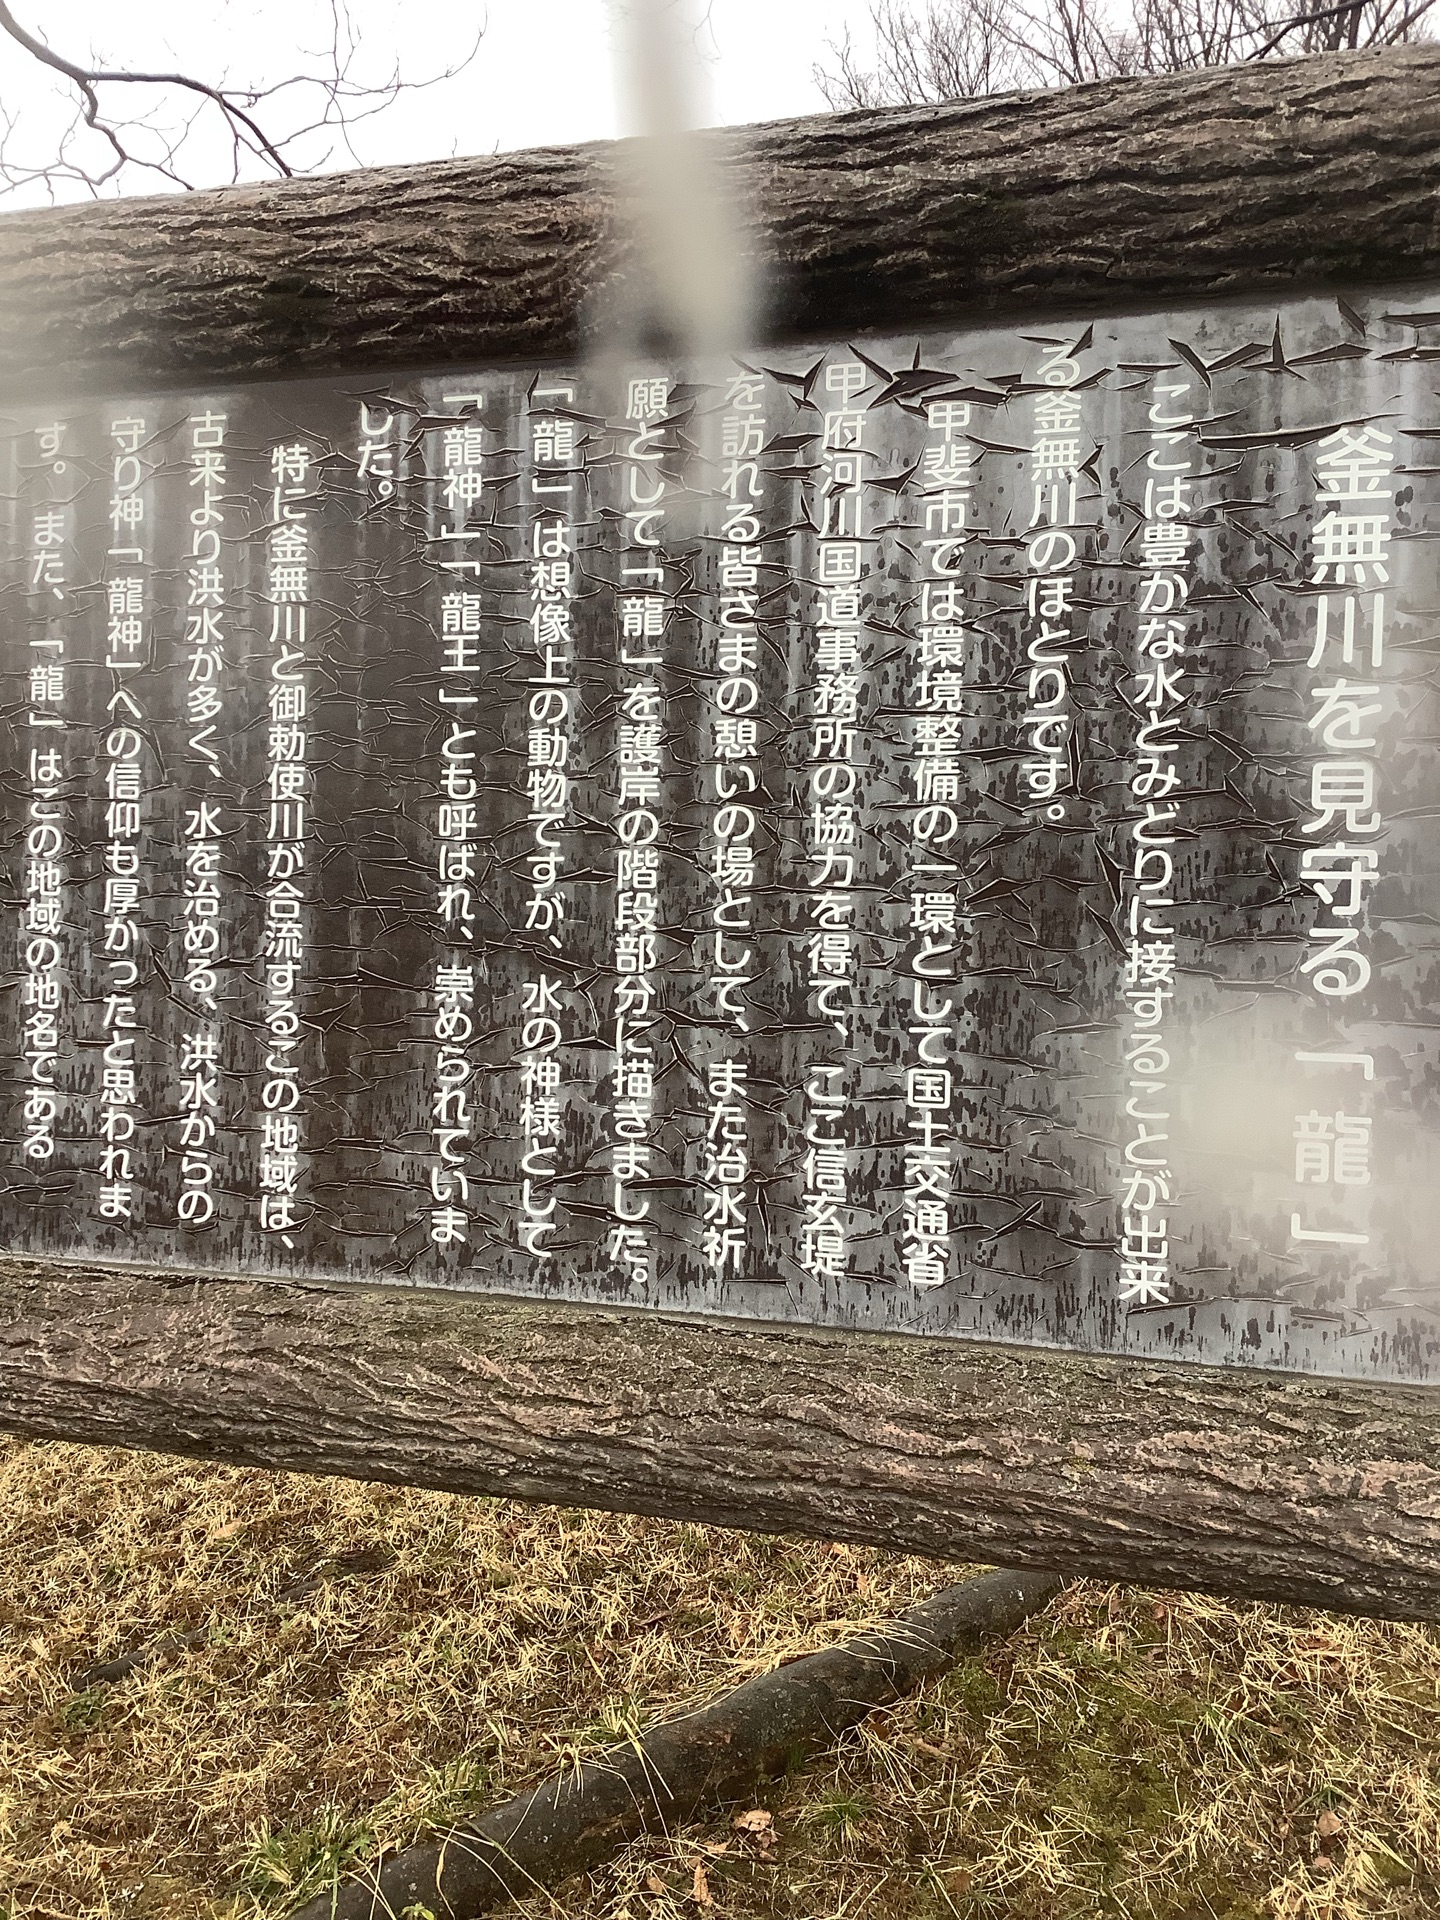 釜無川を見守る「龍」
ここは豊かな水とみどりに接することが出来
る釜無川のほとりです。
甲斐市では環境整備の一環として国土交通省
甲府河川国道事務所の協力を得て、ここ信玄堤
を訪れる皆さまの憩いの場として、また治水祈
願として「龍」を護岸の階段部分に描きました。
「龍」は想像上の動物ですが、水の神様として
「龍神」「龍王」とも呼ばれ、崇められていま
した。
特に釜無川と御勅使川が合流するこの地域は、
古来より洪水が多く、水を治める、洪水からの
守り神「龍神」への信仰も厚かったと思われま
す。また、「龍」はこの地域の地名である